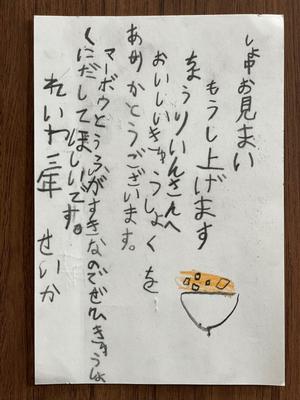 しょ中お見まい
もうし上げます
きゅうりいんさんへ
おいしいきゅうしょくを
ありがとうございます。
マーボウとうふがすきなのでぜひきゅうしょ
くにだしてほしいです。
れいわ三年 せいか